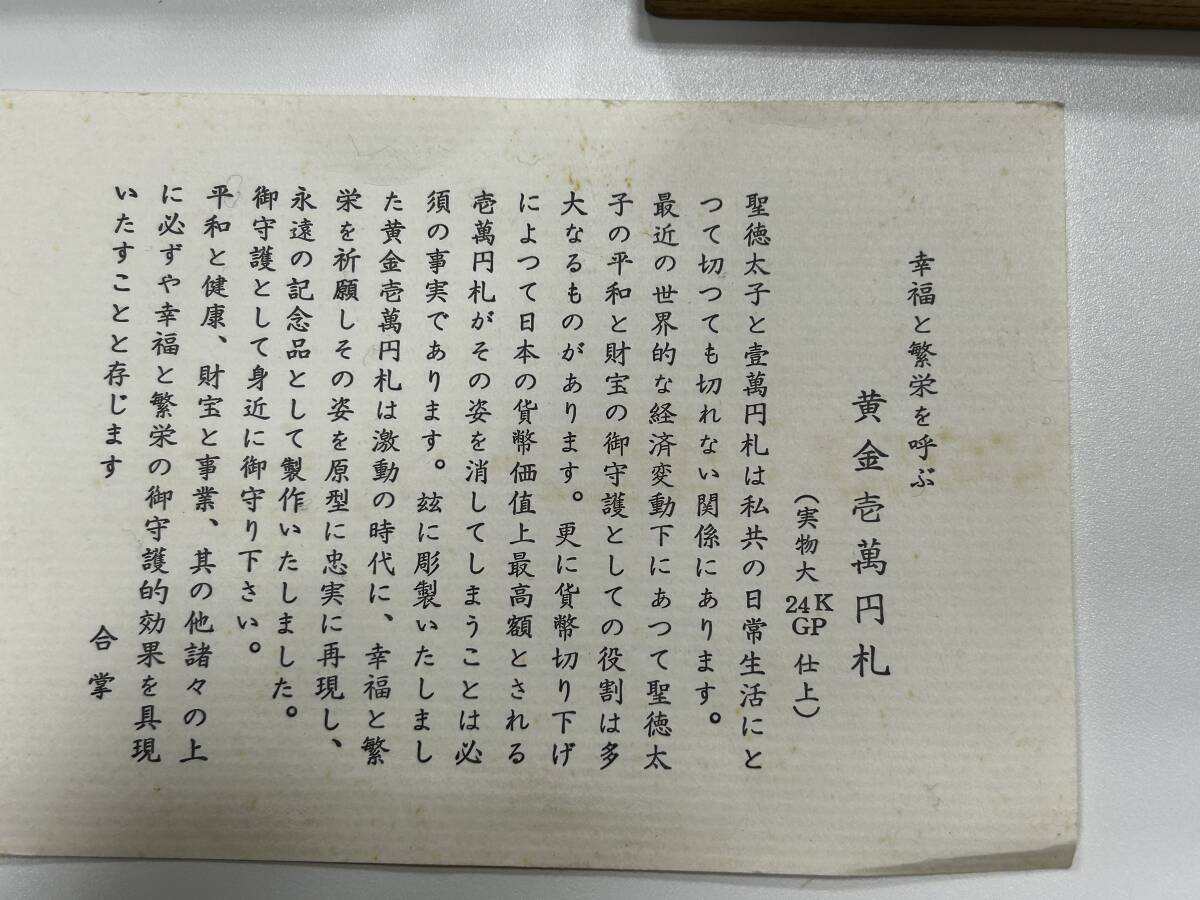 幸福と繁栄を呼ぶ
黄金壱萬円札
（実物大 24K GP 仕上）
聖徳太子と壹萬円札は私共の日常生活にと
つて切つても切れない関係にあります。
最近の世界的な経済変動下にあつて聖徳太
子の平和と財宝の御守護としての役割は多
大なるものがあります。更に貨幣切り下げ
によつて日本の貨幣価値上最高額とされる
壱萬円札がその姿を消してしまうことは必
須の事実であります。玆に彫製いたしまし
た黄金壱萬円札は激動の時代に、幸福と繁
栄を祈願しその姿を原型に忠実に再現し、
永遠の記念品として製作いたしました。
御守護として身近に御守り下さい。
平和と健康、財宝と事業、其の他諸々の上
に必ずや幸福と繁栄の御守護的効果を具現
いたすことと存じます
合掌